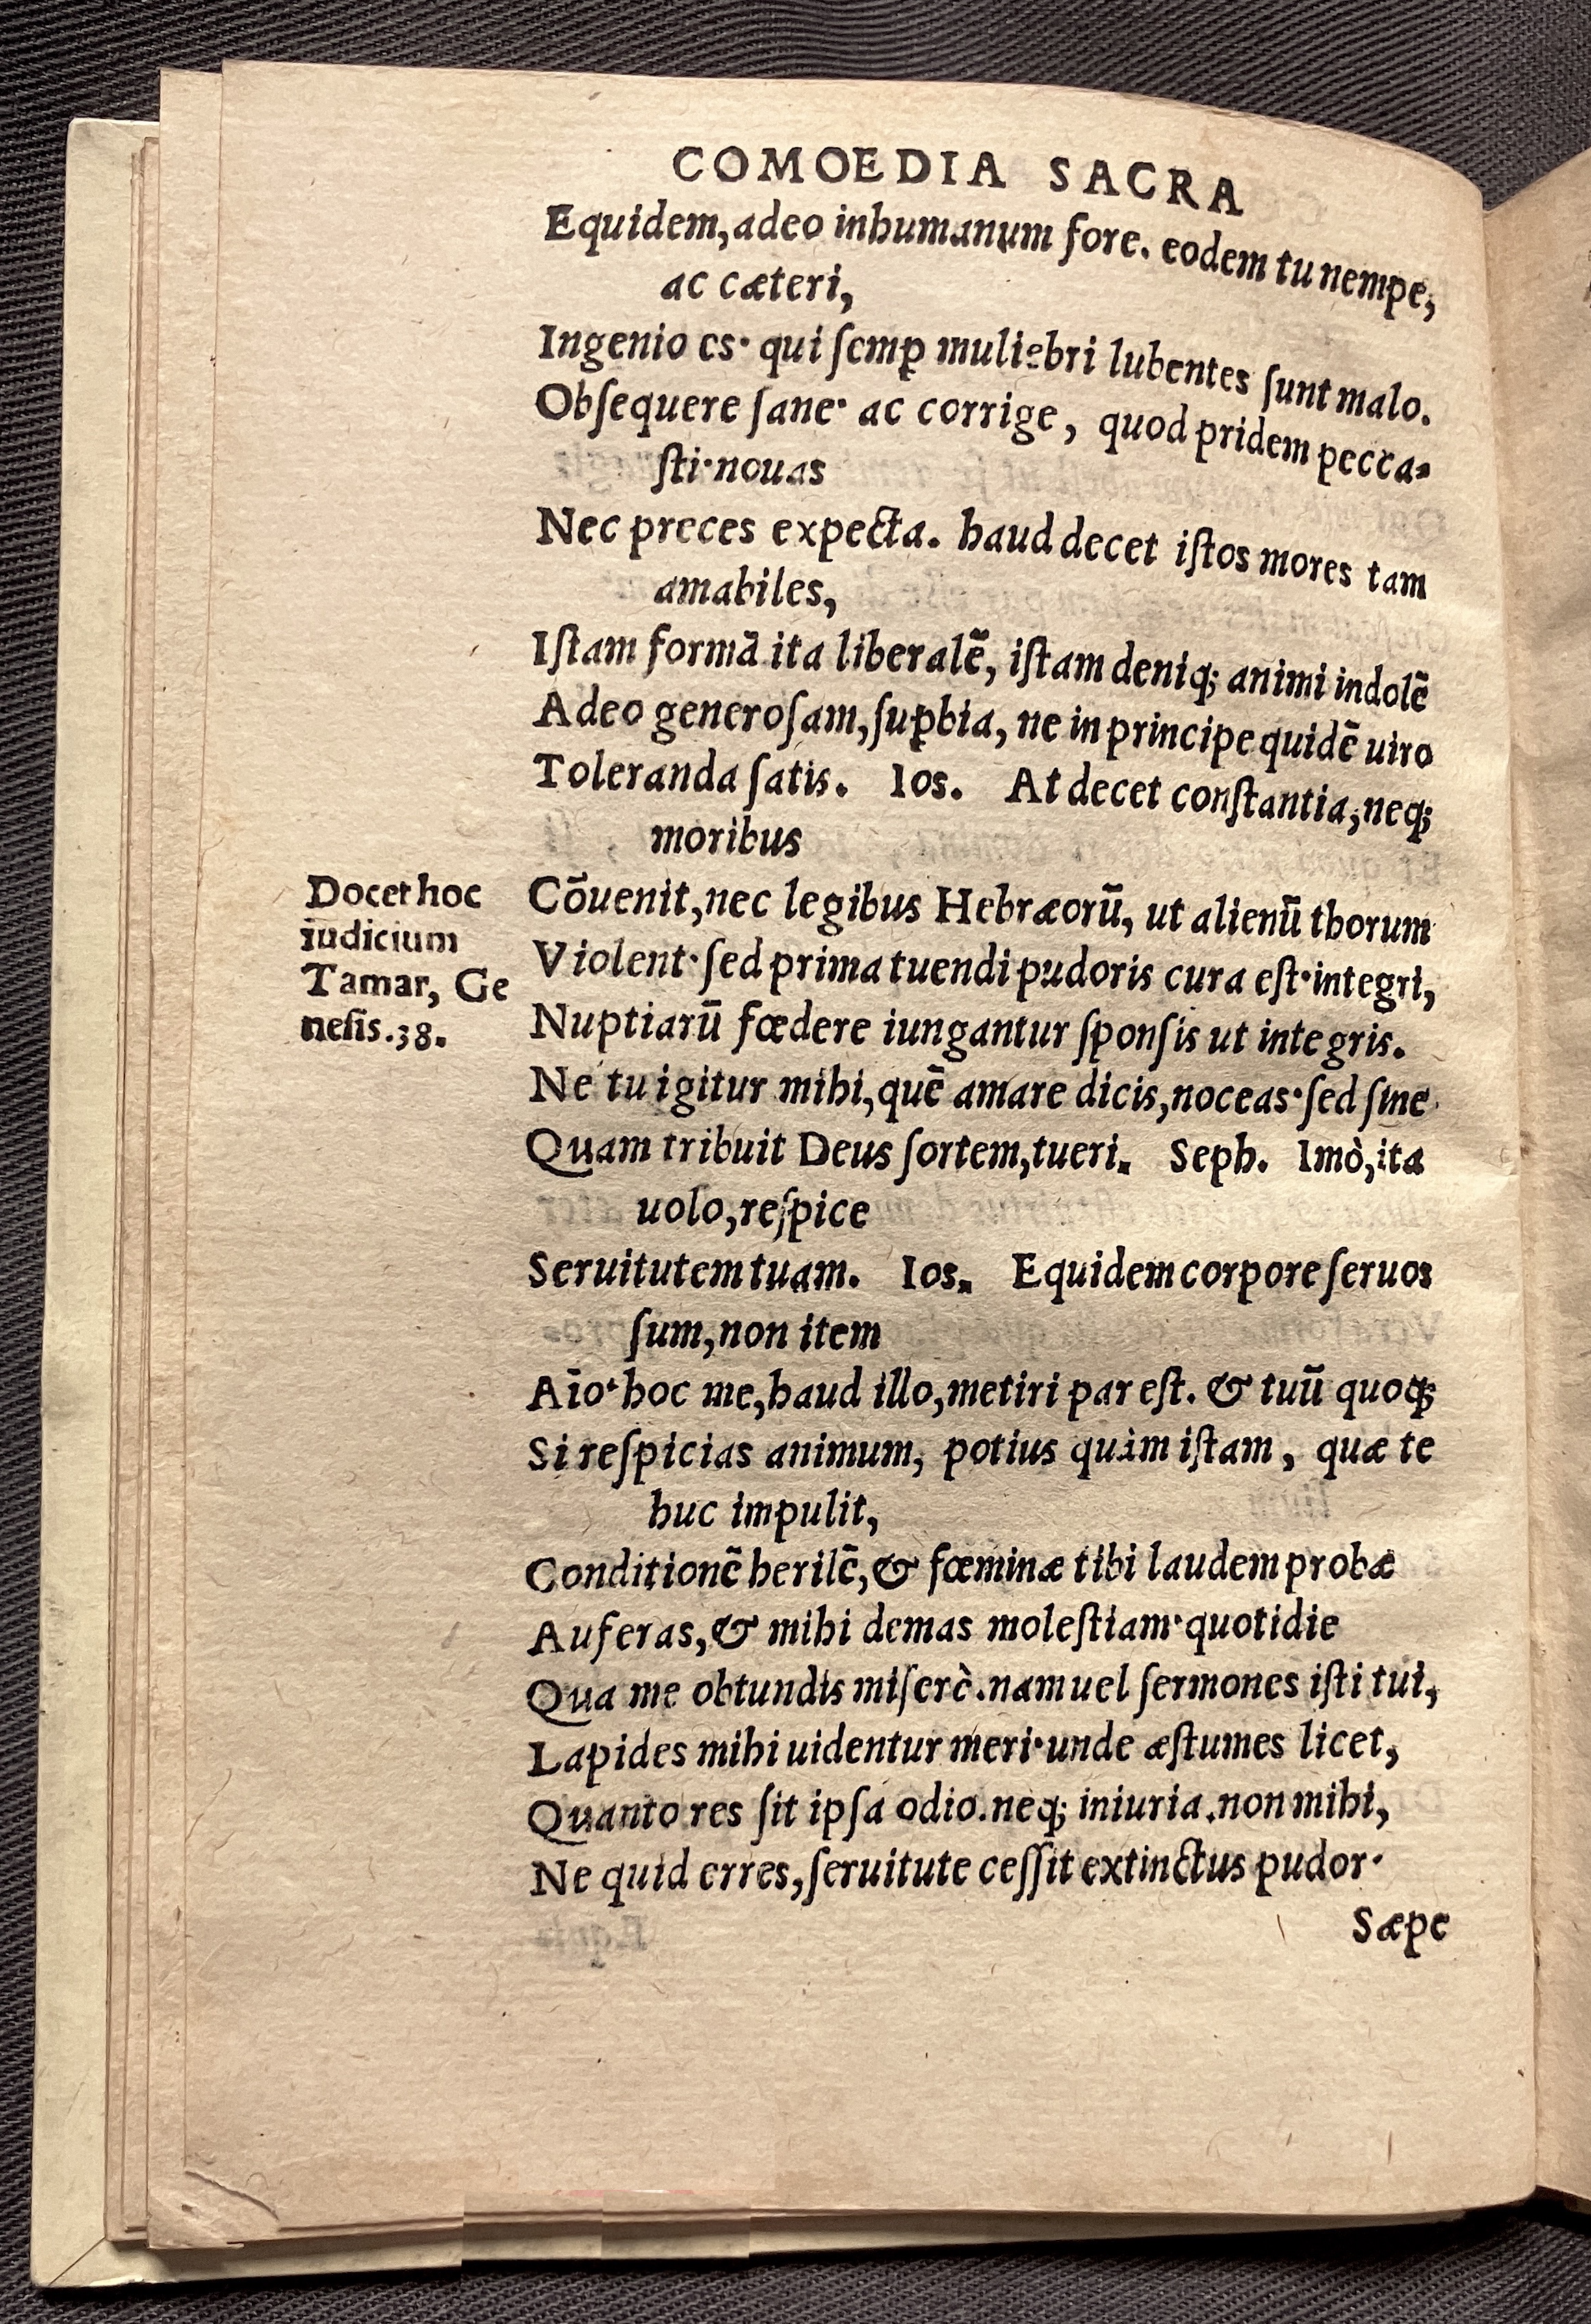 COMOEDIA SACRA
Equidem, adeo inhumanum fore. eodem tu nempe,
ac cæteri,
Ingenio es· qui ſemꝑ muliebri lubentes ſunt malo.
Obſequere ſane· ac corrige, quod pridem pecca-
ſti·nouas
Nec preces expecta. haud decet iſtos mores tam
amabiles,
Iſtam formā ita liberalē, iſtam deniq; animi indolē
Adeo generoſam, ſuꝑbia, ne in principe quidē uiro
Toleranda ſatis. Ios. At decet conſtantia, neq;
moribus
Docet hoc
iudicium
Tamar, Ge
neſis.38.
Cōuenit, nec legibus Hebræorū, ut alienū thorum
Violent· ſed prima tuendi pudoris cura eſt·integri,
Nuptiarū fœdere iungantur ſponſis ut integris.
Ne tu igitur mihi, quē amare dicis, noceas·ſed ſine
Quam tribuit Deus ſortem, tueri. Seph. Imò, ita
uolo, reſpice
Seruitutem tuam. Ios. Equidem corpore ſeruos
ſum, non item
Aīo·hoc me, haud illo, metiri par eſt. & tuū quoq;
Si reſpicias animum, potius quàm iſtam, quæ te
huc impulit,
Conditionē herilē, & fœminæ tibi laudem probæ
Auferas, & mihi demas moleſtiam·quotidie
Qua me obtundis miſerè. nam uel ſermones iſti tui,
Lapides mihi uidentur meri·unde æſtumes licet,
Quanto res ſit ipſa odio. neq; iniuria. non mihi,
Ne quid erres, ſeruitute ceſſit extinctus pudor·
Sæpe